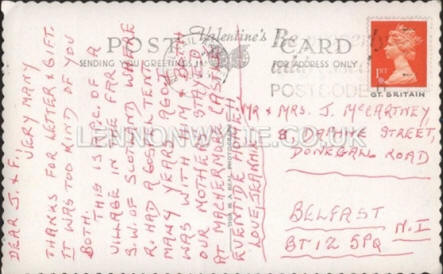 POST CARD
SENDING YOU GREETINGS
Valentine's
FOR ADDRESS ONLY
POSTCODE
1ST
GT. BRITAIN
DEAR J. & F.
VERY MANY
THANKS FOR LETTER & GIFT.
IT WAS TOO KIND OF YOU
BOTH.
THIS IS A P.C. OF A
VILLAGE IN THE FAR
S.W. OF SCOTLAND WHERE
R. HAD A GOSPEL TENT
MANY YEARS AGO. I
WAS WITH HIM & BOTH
OUR MOTHERS STAYED
AT MACHERMORE CASTLE
EVENTIDE HOME
LOVE, JEANNIE
MR & MRS. J. McCARTNEY,
8 DAPHNE STREET,
DONEGALL ROAD
BELFAST
BT12 5PQ N.I
LENNONWYLIE.CO.UK